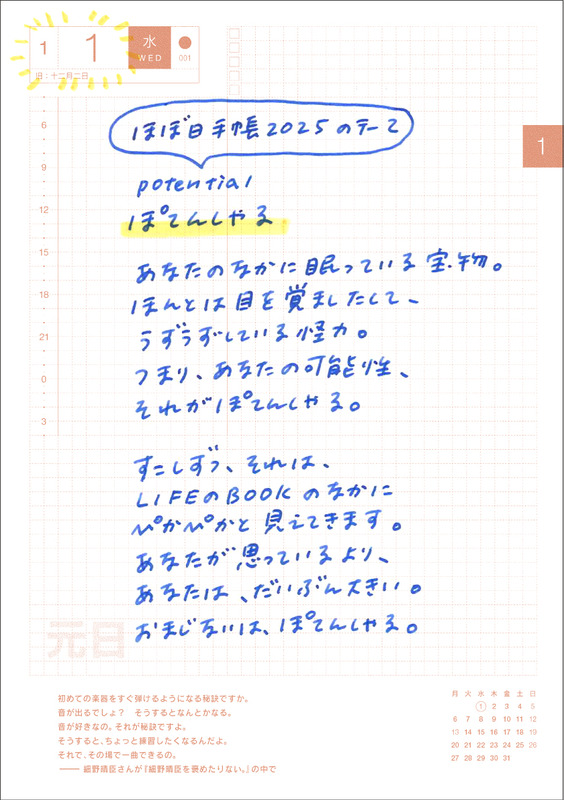 1 1 水 WED 001
旧:十二月二日
1
6
9
12
15
18
21
0
3
ほぼ日手帳2025のテーマ
potential
ぽてんしゃる
あなたのなかに眠っている宝物。
ほんとは目を覚ましたくて、
うずうずしている怪力。
つまり、あなたの可能性、
それがぽてんしゃる。
すこしずつ、それは、
LIFEのBOOKのなかに
ぴかぴかと見えてきます。
あなたが思っているより、
あなたは、だいぶん大きい。
おまじないは、ぽてんしゃる。
元日
初めての楽器をすぐ弾けるようになる秘訣ですか。
音が出るでしょ? そうするとなんとかなる。
音が好きなの。それが秘訣ですよ。
そうすると、ちょっと練習したくなるんだよ。
それで、その場で一曲できるの。
—— 細野晴臣さんが『細野晴臣を褒めたりない。』の中で
月 火 水 木 金 土 日
1 2 3 4 5
6 7 8 9 10 11 12
13 14 15 16 17 18 19
20 21 22 23 24 25 26
27 28 29 30 31